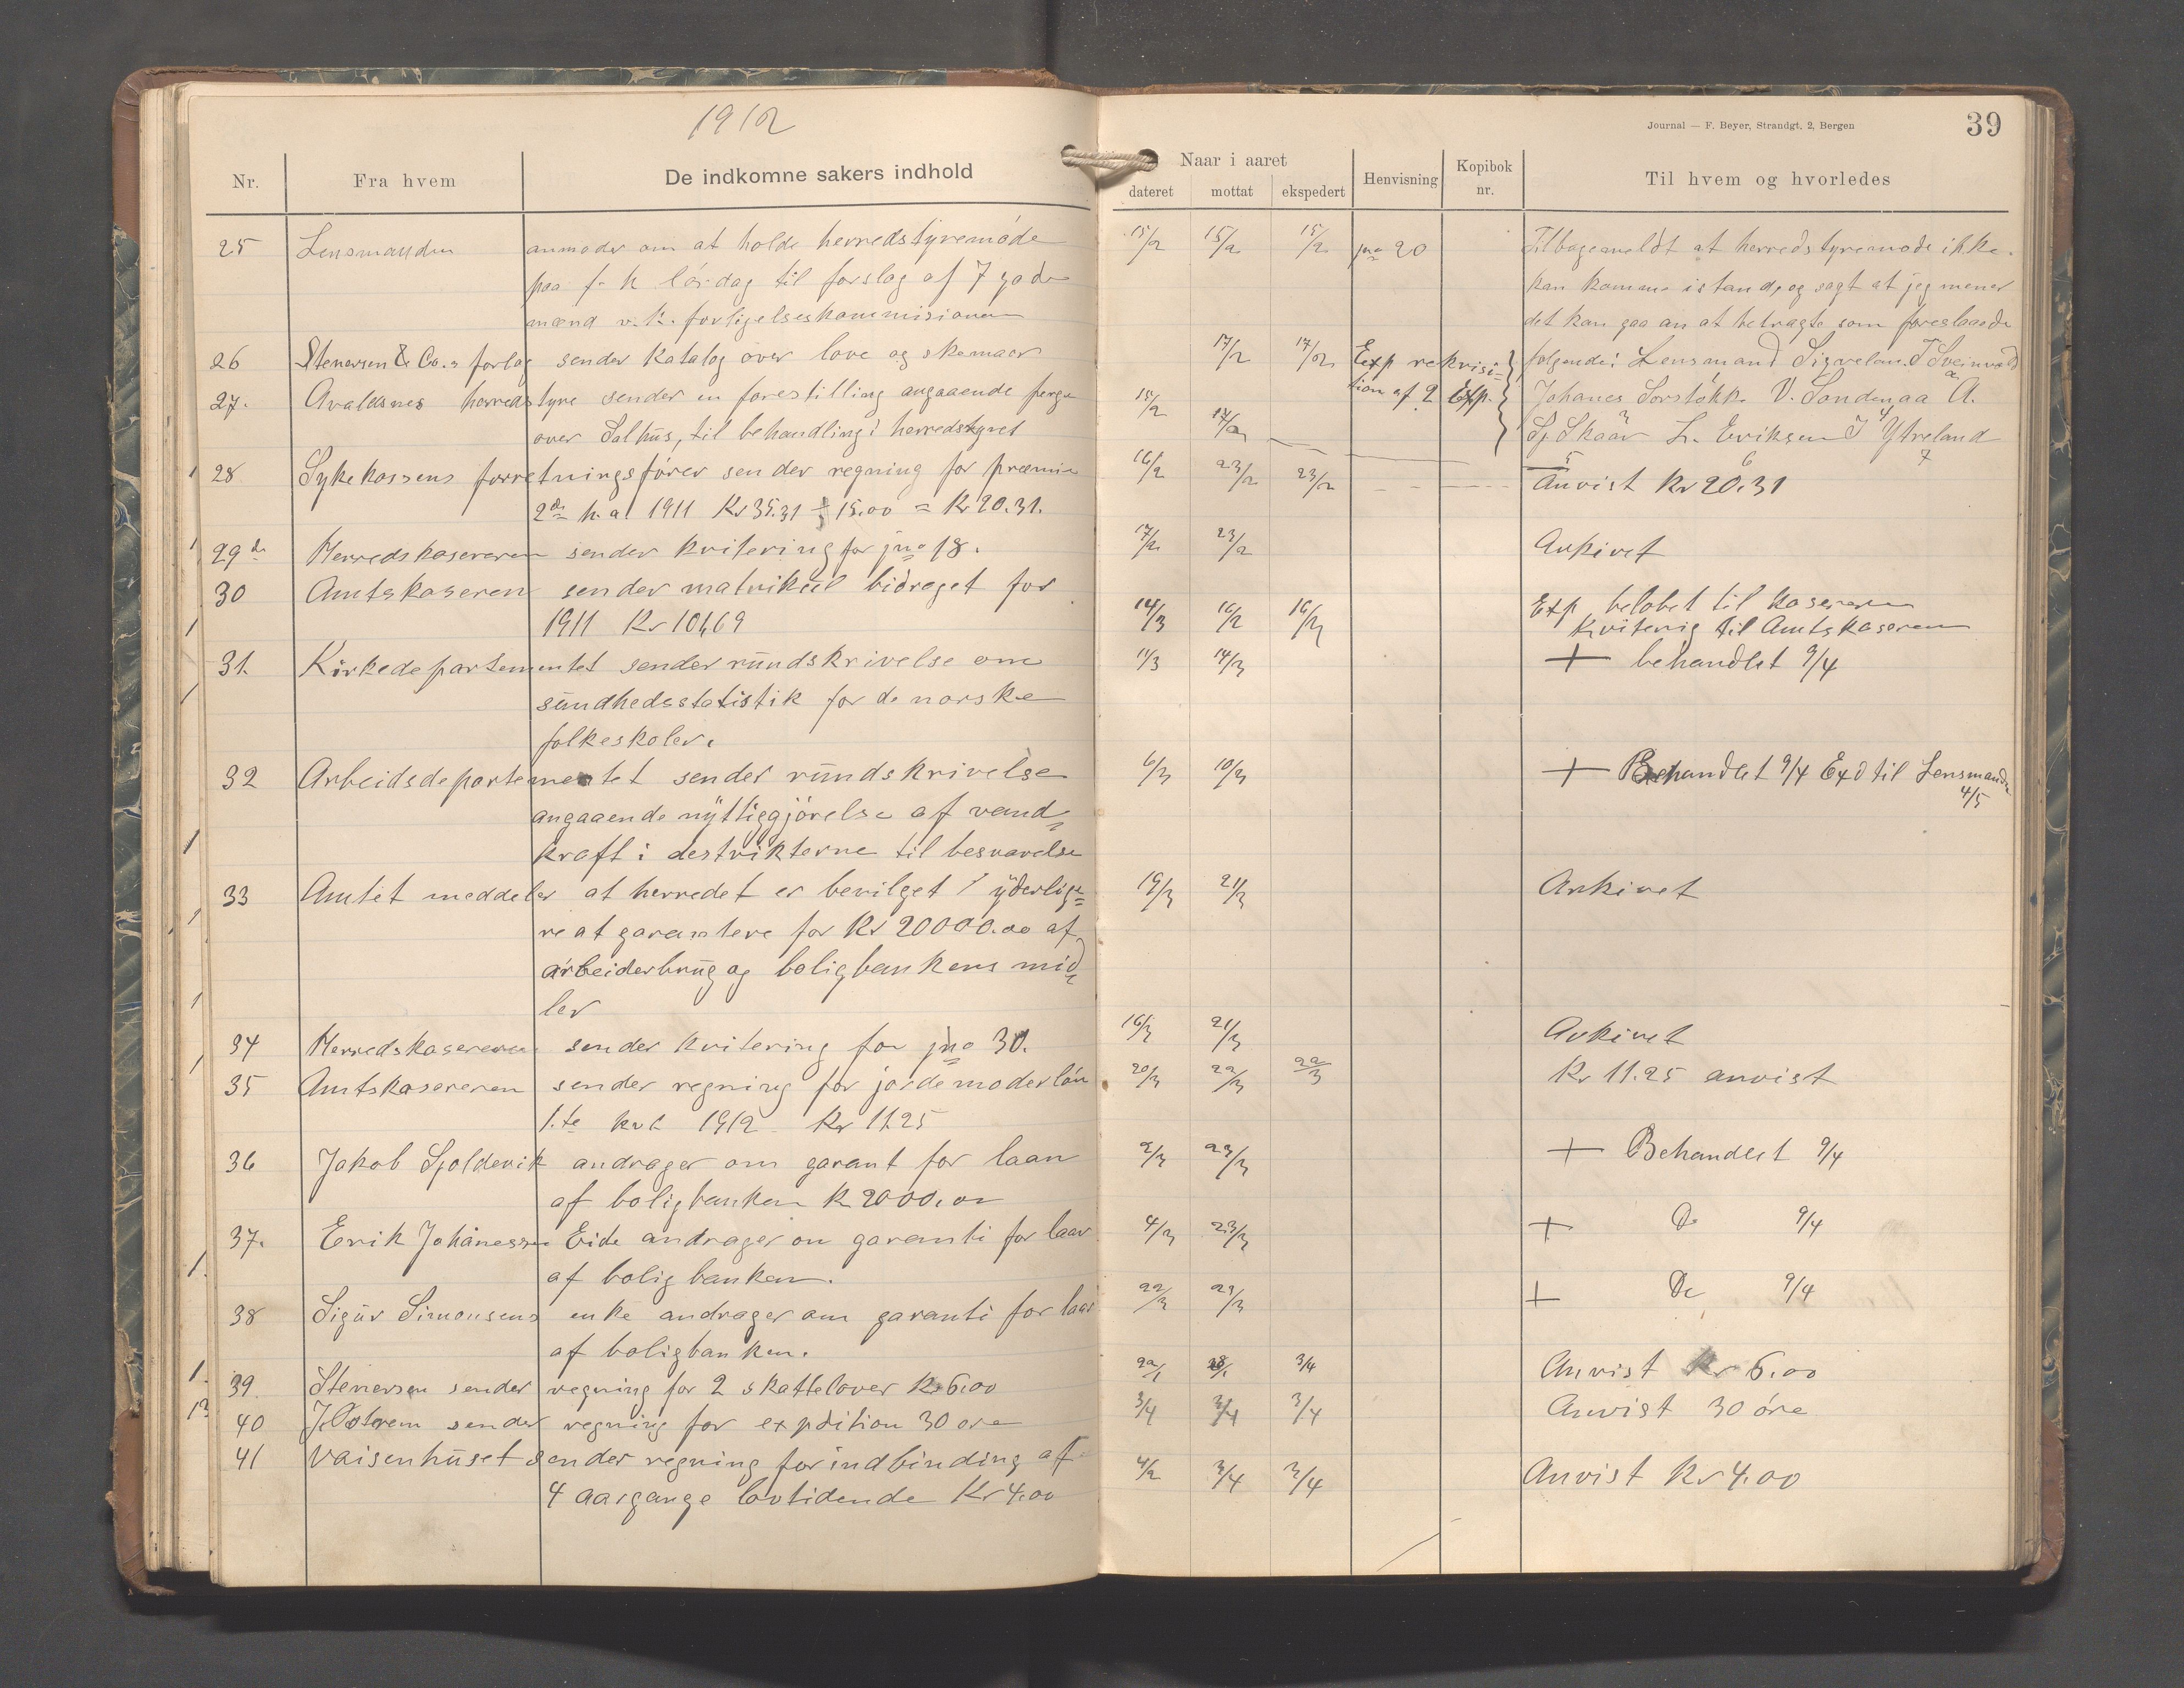 1912
Journal — F. Beyer, Strandgt. 2, Bergen
39
Nr. Fra hvem De indkomne sakers indhold
Naar i aaret
dateret mottat ekspedert Henvisning Kopibok nr. Til hvem og hvorledes
25 Lensmanden anmoder om at holde herredstyremöde 15/2 15/2 15/2 jno 20 Tilbagemeldt at herredstyremöde ikke
paa f. k lördag til forslag af 7 gode kan komme istand, og sagt at jeg mener
mænd v. k. forligelseskommisionen det kan gaa an at betragte som foreslaaede
26 Stenersen & Co.s forlag sender Katalog over love og skemaer 17/2 17/2 Exp rekvisi- følgende: Lensmand
27. Avaldsnes herredstyre sender en forestilling angaaende færge 15/2 17/2 tion af 2 Exp. Johanes V. Sandenaa A.
over Salhus, til behandling i herredstyret Skaar L. Eriksen I Ytreland
28 Sykekassens forretningsförer sender regning for præmie 16/2 23/2 23/2 Anvist Kr 20.31
2den h. a. 1911 Kr 35.31 ÷ 15.00 = Kr 20.31.
29 Herredskasereren sender kvitering for jno 18. 17/2 23/2 Arkivet
30 Amtskaseren sender matrikul bidraget for Exp belöbet til kasereren
1911 Kr 104,69 14/3 16/2 16/3 Kvitering til Amtskaseren
31. Kirkedepartementet sender rundskrivelse om 11/3 14/3 + behandlet 9/4
sundhedsstatistik for de norske
folkeskoler.
32 Arbeidsdepartementet sender rundskrivelse 6/3 10/3 + Behandlet 9/4 Exd til Lensmanden
4/5
angaaende nyttiggjörelse af vand-
kraft i destrikterne til besvarelse
33 Amtet meddeler at herredet er bevilget yderlige- 19/3 21/3 Arkivet
re at garantere for Kr 20000.00 af
arbeiderbrug og boligbankens mid-
ler
34 Herredskasereren sender kvitering for jno 30. 16/3 21/3 Arkivet
35 Amtskasereren sender regning for jordemoderlön 20/3 22/3 22/3 Kr 11.25 anvist
1.te kvt 1912 Kr 11.25
36 Jakob Spolderik andrager om garant for laan 2/3 23/3 + Behandlet 9/4
af boligbanken Kr 2000.00
37. Erik Johanessen Eide andrager om garanti for laan 4/3 23/3 + Do 9/4
af boligbanken.
38 Sigur Simonsens enke andrager om garanti for laan 22/3 23/3 + Do 9/4
af boligbanken.
39 Stenersen sender regning for 2 skattelover Kr 6.00 22/1 3/4 Anvist Kr 6.00
40 J. Østrem sender regning for expdition 30 öre 3/4 3/4 3/4 Anvist 30 öre
41 Vaisenhuset sender regning for indbinding af 4/2 3/4 3/4 Anvist Kr 4.00
4 aargange lovtidende Kr 4.00